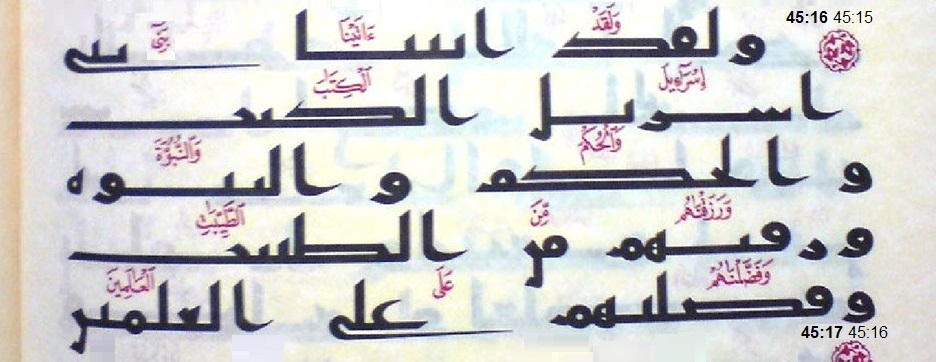 45:16 45:15
وَلَقَدْ ءَاتَيْنَا بَنِىٓ
ولقد اتينا بنى
إِسْرَٰٓءِيلَ ٱلْكِتَٰبَ
اسريل الكتب
وَٱلْحُكْمَ وَٱلنُّبُوَّةَ
و الحكم و النبوه
وَرَزَقْنَٰهُم مِّنَ ٱلطَّيِّبَٰتِ
ورزقنهم من الطيبت
وَفَضَّلْنَٰهُمْ عَلَى ٱلْعَٰلَمِينَ
وفضلنهم على العلمين
45:17 45:16